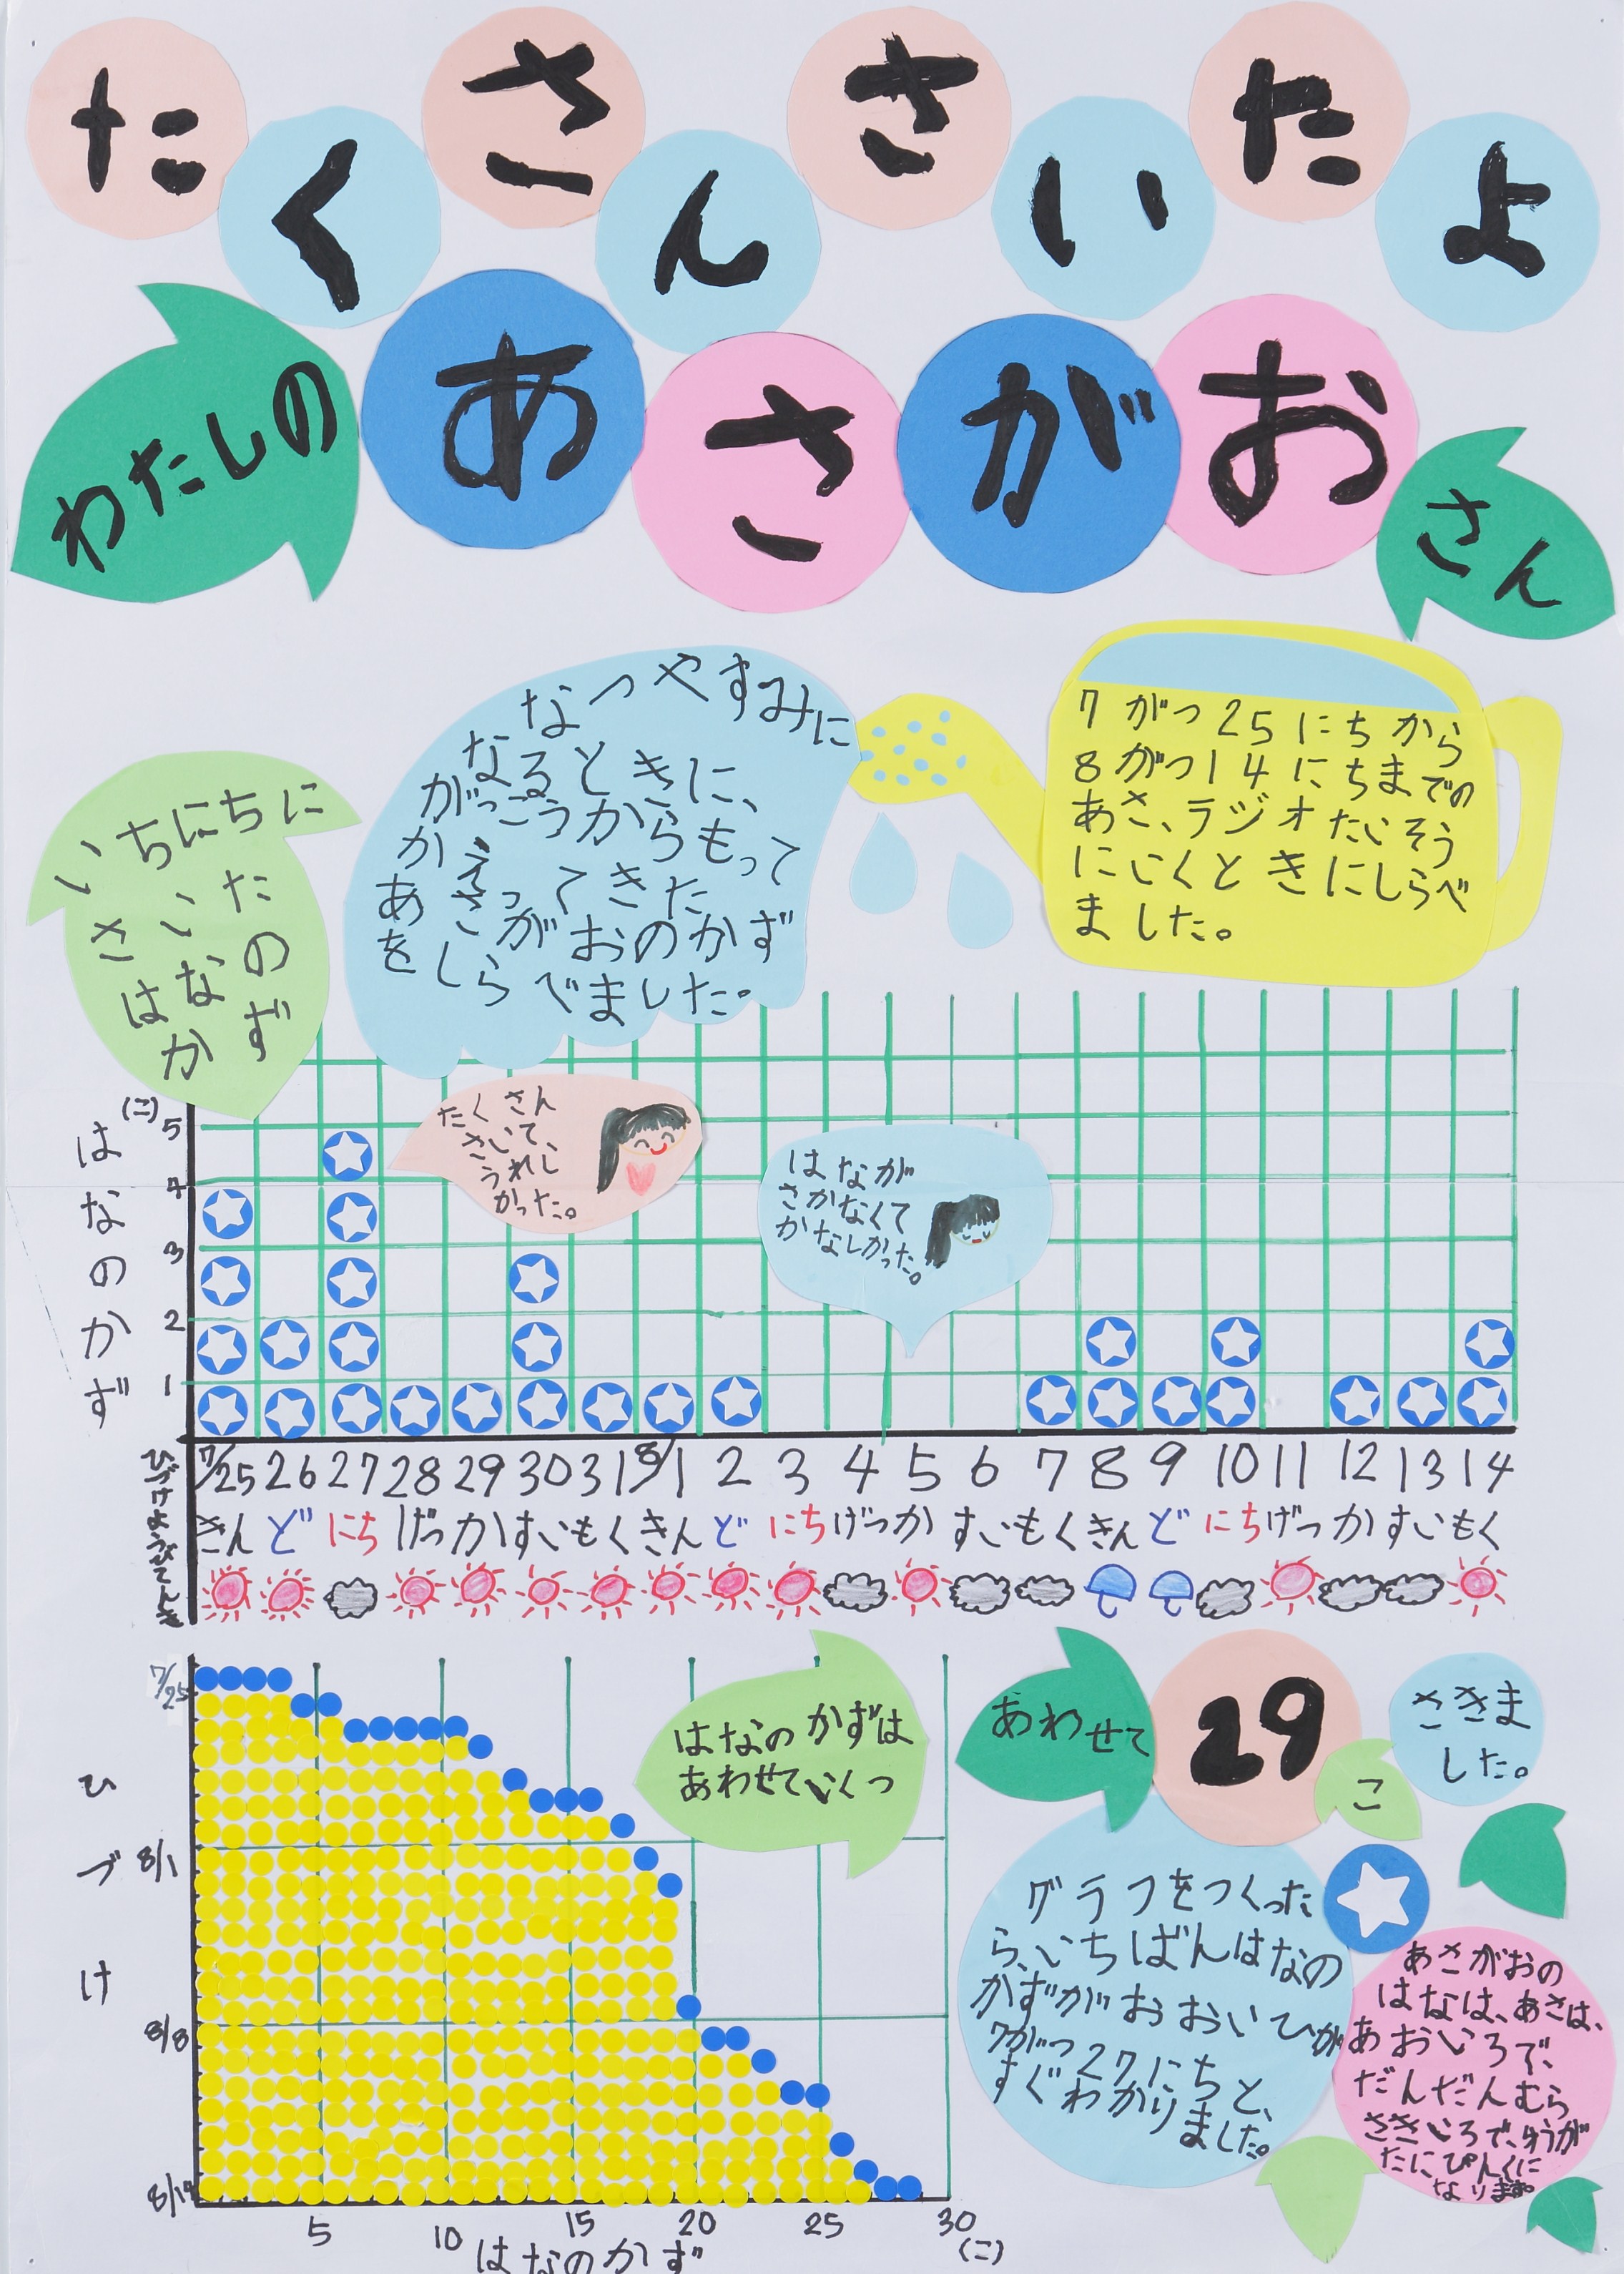 たくさんさいたよ
わたしのあさがおさん
なつやすみに
なるときに、
がっこうからもって
かえってきた
あさがおのかず
をしらべました。
7がつ25にちから
8がつ14にちまでの
あさ、ラジオたいそう
にいくときにしらべ
ました。
いちにちに
さいた
はなの
かず
たくさん
さいて、
うれし
かった。
はなが
さかなくて
かなしかった。
(こ)
5
4
3
2
1
はなのかず
7/25 26 27 28 29 30 31 8/1 2 3 4 5 6 7 8 9 10 11 12 13 14
ひづけようびてんき
きん ど にち げつ か すい もく きん ど にち げつ か すい もく きん ど にち げつ か すい もく
はなのかずは
あわせていくつ
7/25
8/1
8/8
8/14
ひづけ
5 10 15 20 25 30
はなのかず
(こ)
あわせて 29 こ さきま
した。
グラフをつくった
ら、いちばんはなの
かずがおおいひが
7がつ27にちと、
すぐわかり
ました。
あさがおの
はなは、あさは、
あおいろで、
だんだんむら
さきいろで、ゆうが
たにぴんくに
なります。